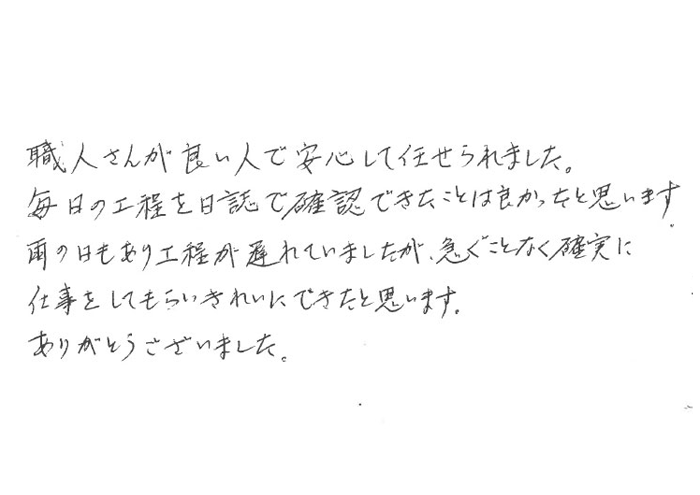 職人さんが良い人で安心して任せられました。
毎日の工程を日誌で確認できたことは良かったと思います。
雨の日もあり工程が遅れていましたが、急ぐことなく確実に
仕事をしてもらいきれいにできたと思います。
ありがとうございました。